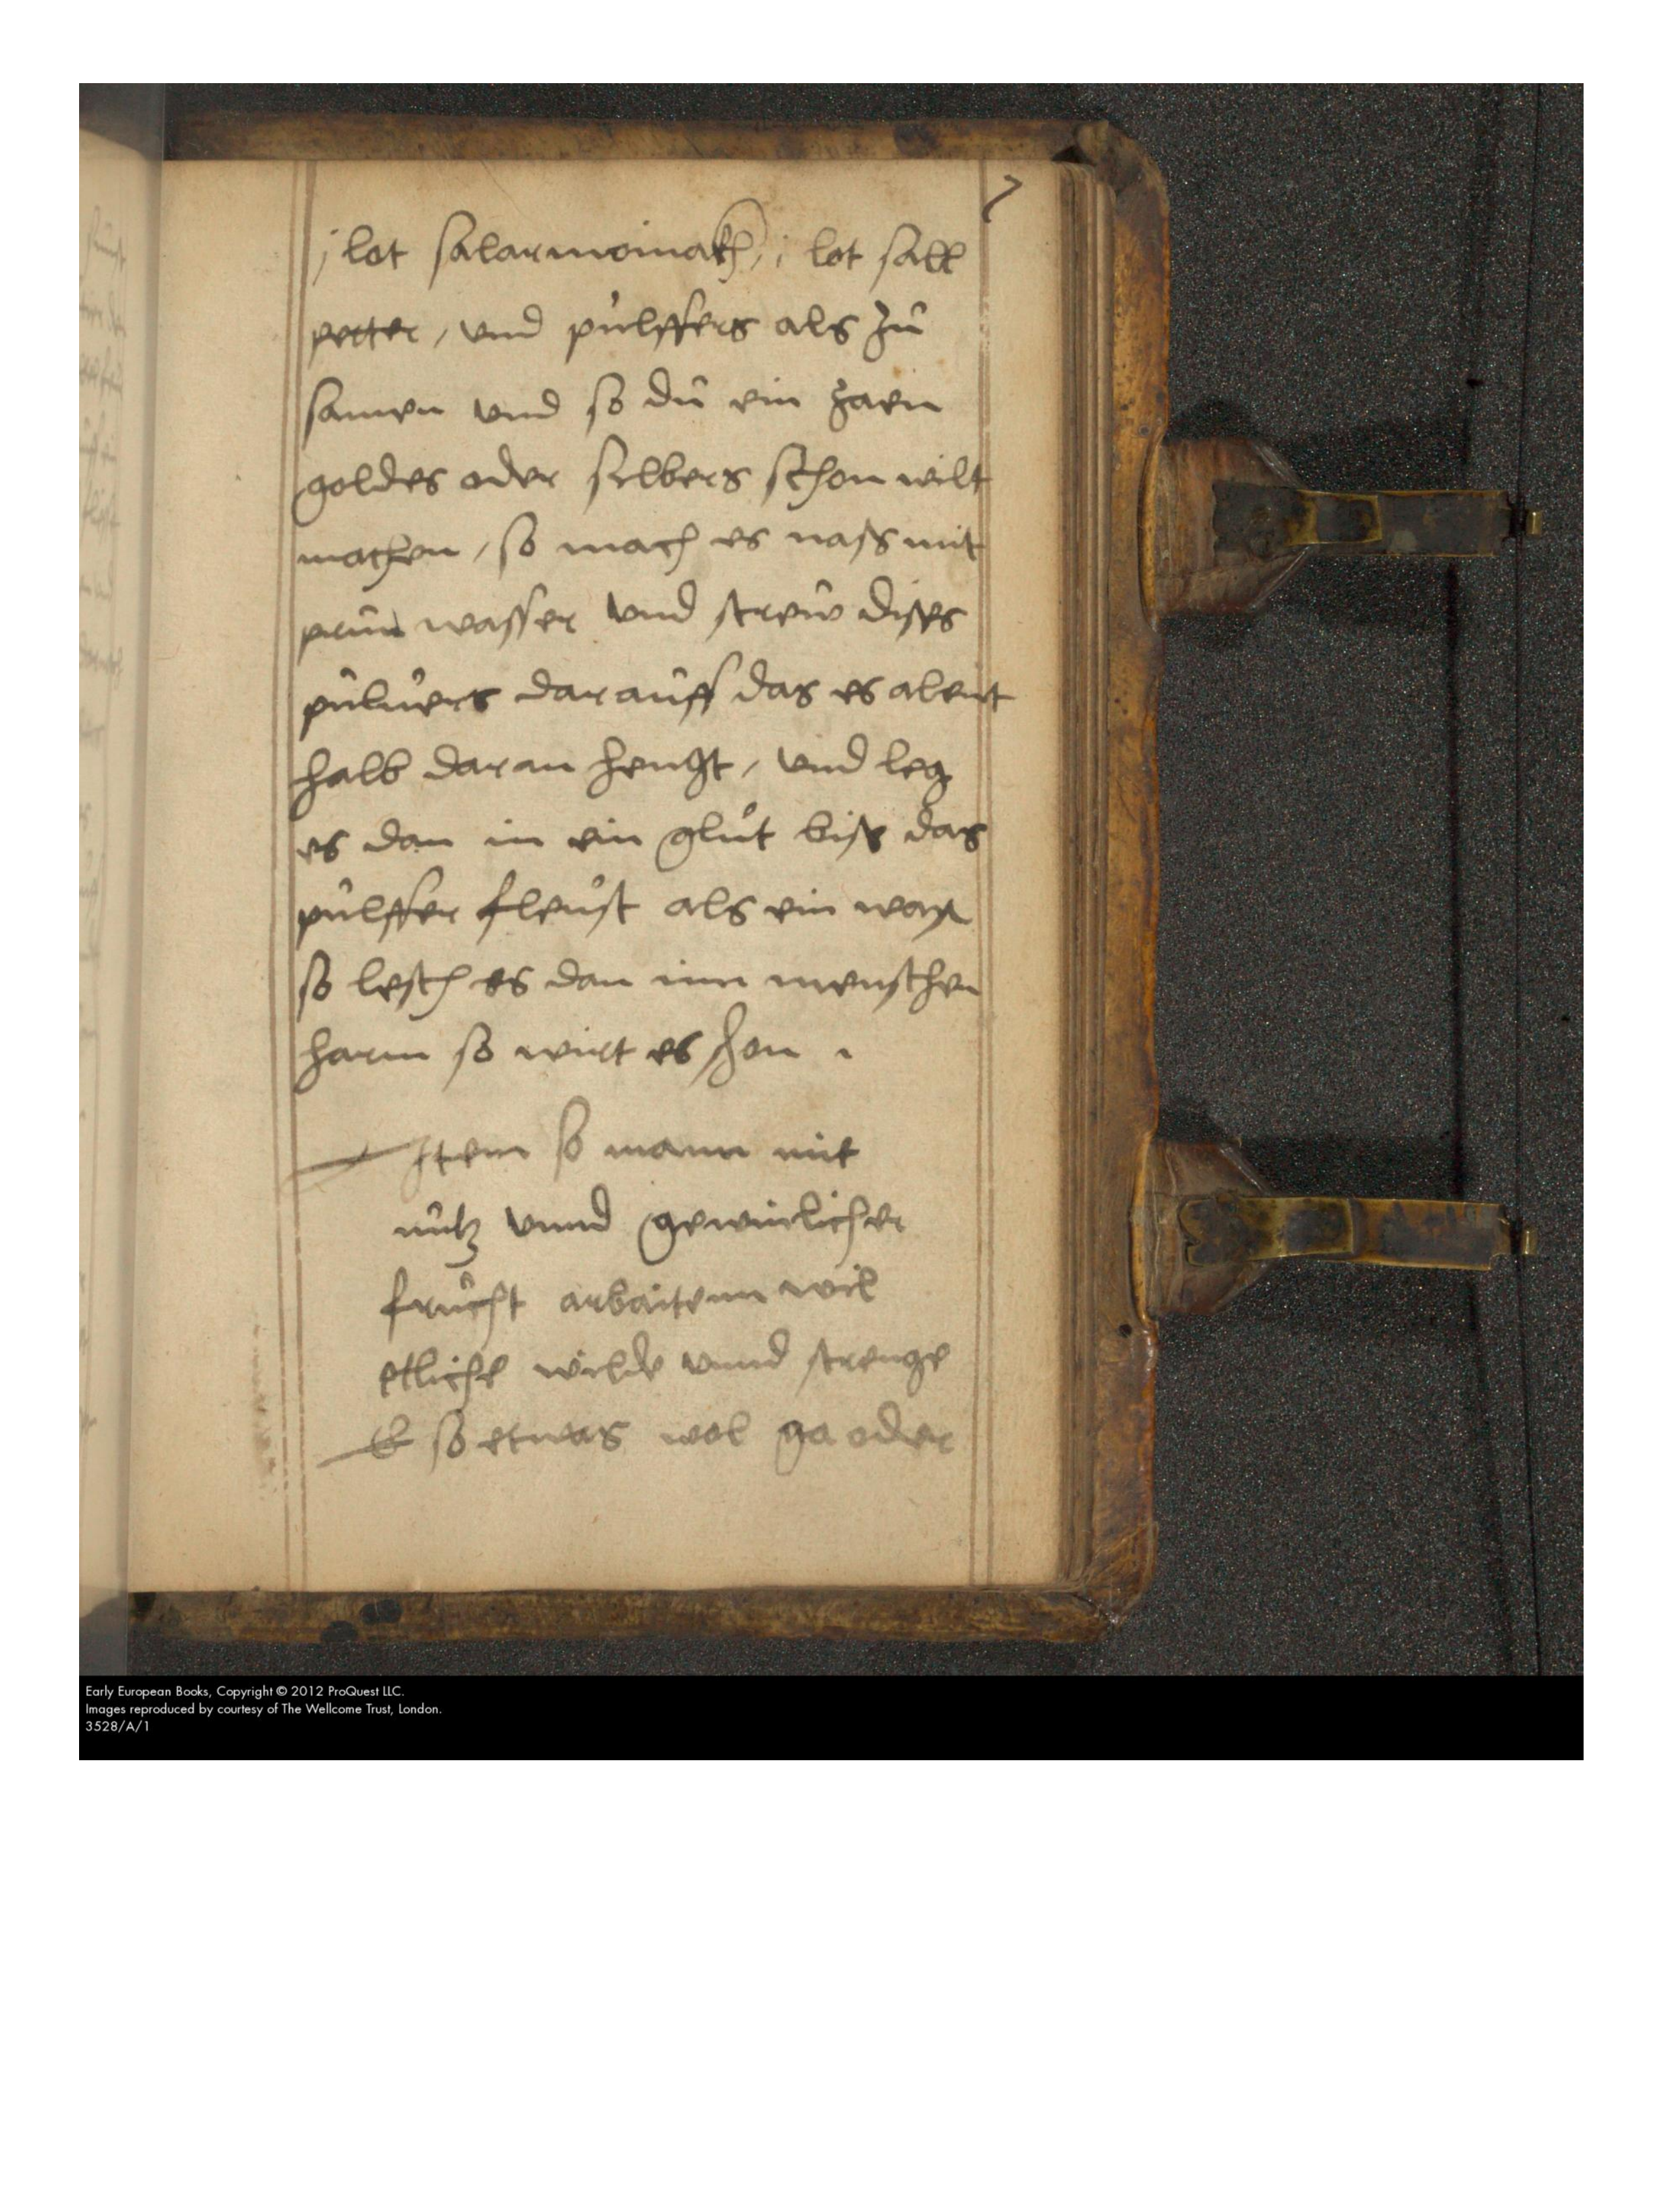 7
j lot salarmoniakh, j lot sall
petter, vnd pulffers als zu
samen vnd so du ein zaen
goldes oder silbers schon wilt
machen, so mach es nass mit
prun wasser vnd strew disses
puluers darauff das es alent
halb daran hengt, vnd leg
es dan in ein gluet biss das
pulffer fleust als ein wax
so lesch es dan inn menschen
harm so wirt es schon .
Item so mann mit
nutz vnnd gewinlicher
frucht arbaitenn wil
etliche wilde vnnd strenge
so etwas wol oder
Early European Books, Copyright © 2012 ProQuest LLC.
Images reproduced by courtesy of The Wellcome Trust, London.
3528/A/1